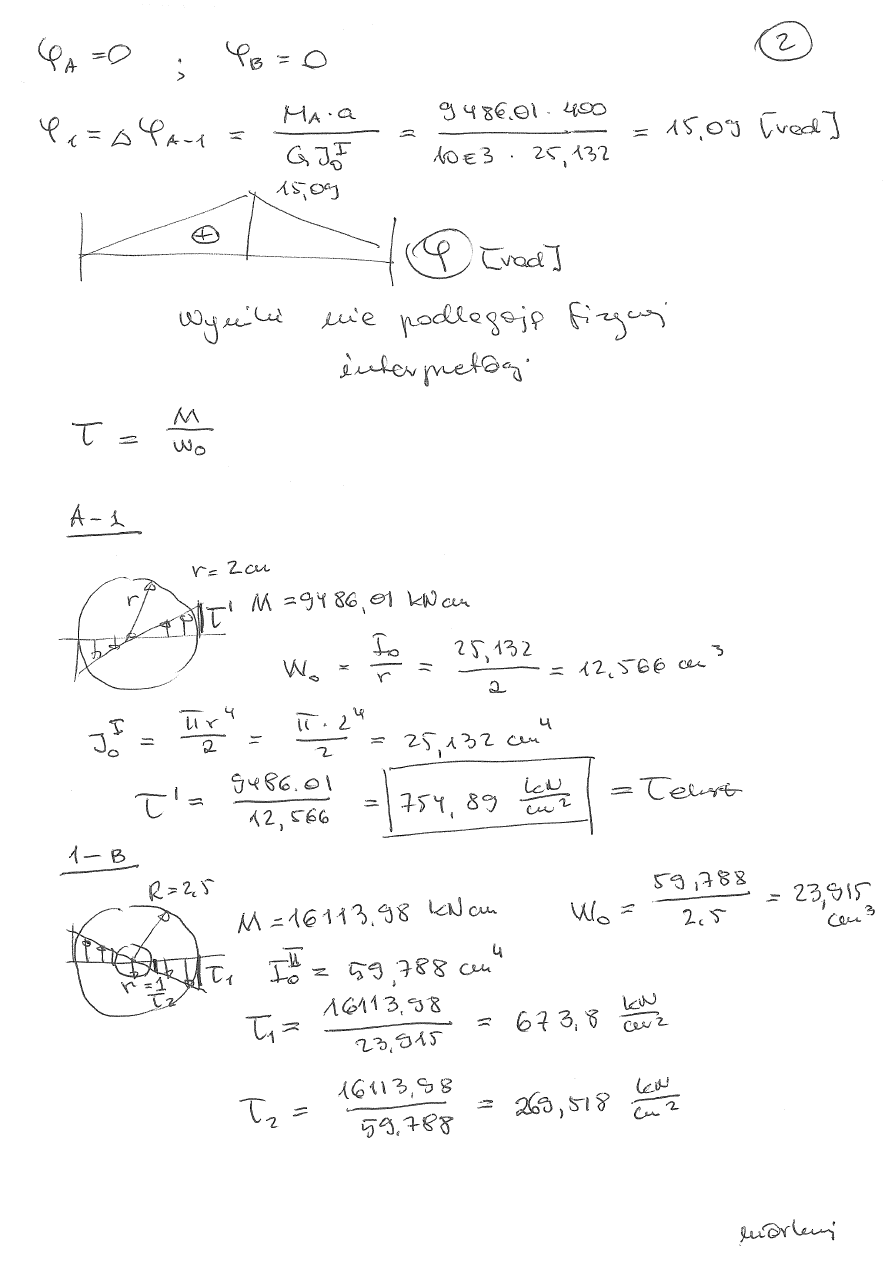 2
φA = 0 ; φB = 0
φ1 = Δ φA-1 = MA·a / GJ0^I = 9486.01 · 400 / 10E3 · 25,132 = 15,09 [rad]
15,09
+ φ [rad]
Wyniki nie podlegają fizycznej
interpretacji
τ = M / W0
A-1
r = 2 cm
r τ' M = 9486,01 kNcm
W0 = I0 / r = 25,132 / 2 = 12,566 cm^3
J0^I = πr^4 / 2 = π · 2^4 / 2 = 25,132 cm^4
τ' = 9486.01 / 12,566 = 754,89 kN/cm2 = τekst
1-B
R = 2,5
M = 16113,98 kNcm W0 = 59,788 / 2,5 = 23,915 cm^3
r = 1 τ2 τ1 I0^II = 59,788 cm^4
τ1 = 16113,98 / 23,915 = 673,8 kN/cm2
τ2 = 16113,98 / 59.788 = 269,518 kN/cm2